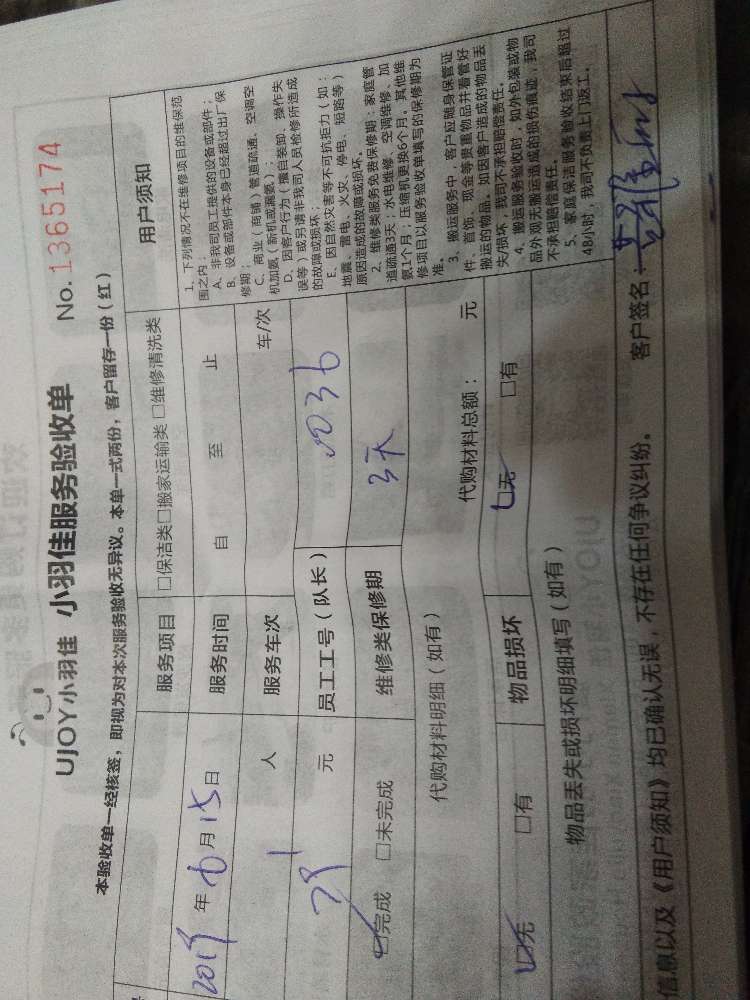 UJOY小羽佳 小羽佳服务验收单 No. 1365174
本验收单一经核签，即视为对本次服务验收无异议。本单一式两份，客户留存一份（红）
年6月15日 服务项目 □保洁类□搬家运输类 □维修清洗类
服务时间 自 至 止
人 服务车次 车/次
元 员工工号（队长） 1036
☑完成 □未完成 维修类保修期 3天
代购材料明细（如有） 代购材料总额： 元
☑无 □有 物品损坏 ☑无 □有
物品丢失或损坏明细填写（如有）
用户须知
1、下列情况不在维修项目的维保范
围之内：
A、非我司员工提供的设备或部件；
B、设备或部件本身已经超过出厂保
修期；
C、商业（商铺）管道疏通、空调空
机加氨（新机或漏氨）；
D、因客户行为（擅自装卸、操作失
误等）或另请非我司人员检修所造成
的故障或损坏；
E、因自然灾害等不可抗拒力（如：
地震、雷电、火灾、停电、短路等）
原因造成的故障或损坏。
2、维修类服务免费保修期：家庭管
道疏通3天；水电维修、空调维修、加
氨1个月；压缩机更换6个月，其他维
修项目以服务验收单填写的保修期为
准。
3、搬运服务中，客户应随身保管证
件、首饰、现金等贵重物品并看管好
搬运的物品，如因客户造成的物品丢
失/损坏，我司不承担赔偿责任。
4、搬运服务验收时，如外包装或物
品外观无搬运造成的损伤痕迹，我司
不承担赔偿责任。
5、家庭保洁服务验收结束后超过
48小时，我司不负责上门返工。
信息以及《用户须知》均已确认无误，不存在任何争议纠纷。 客户签名：